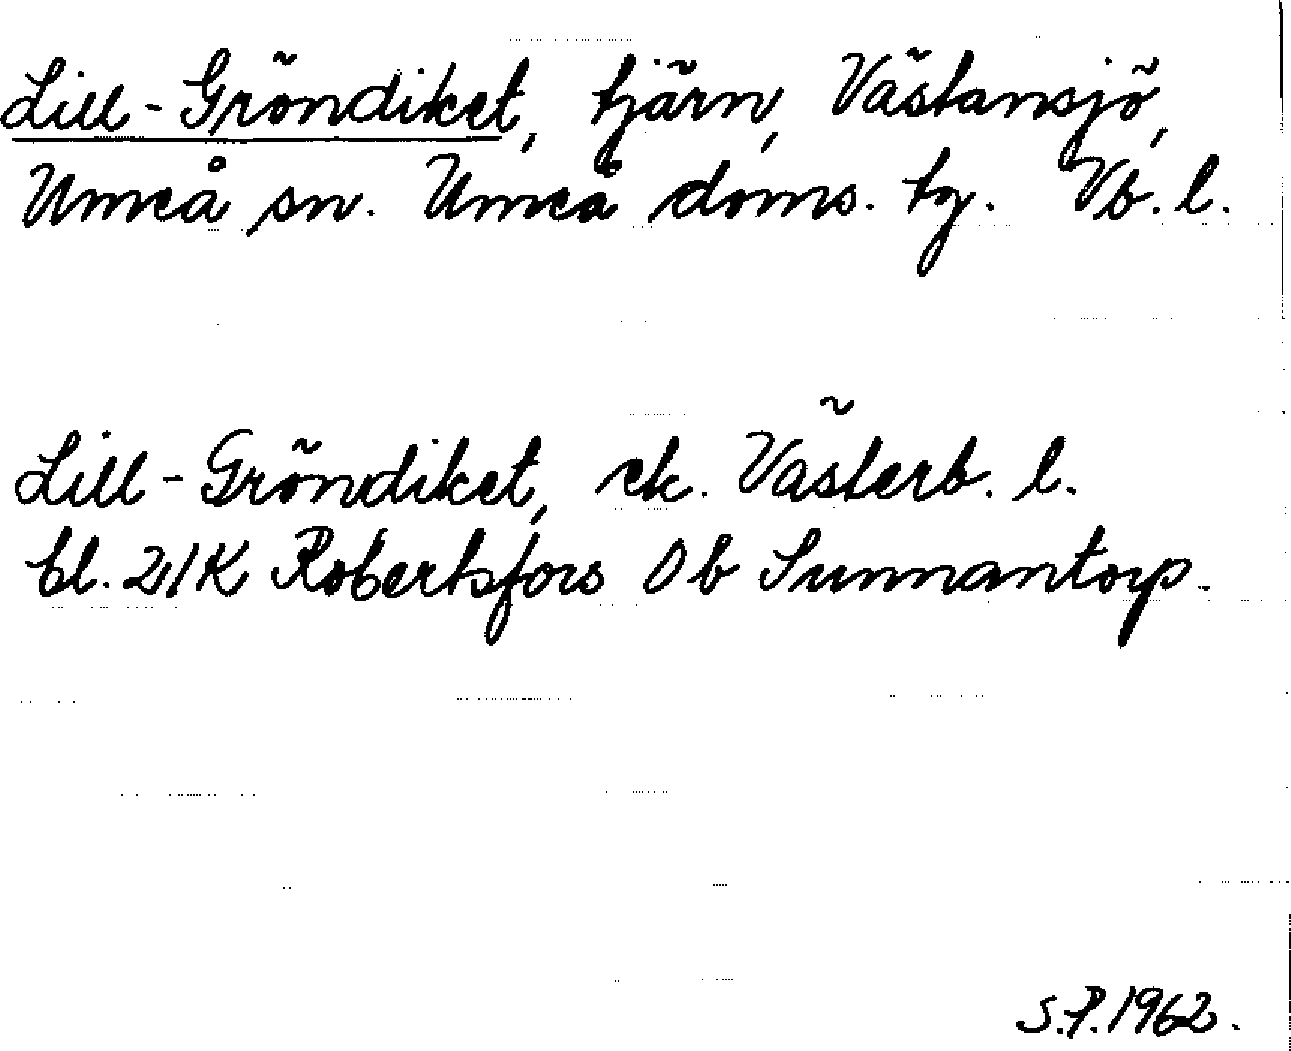 Lill-Gröndiket, tjärn, Västansjö,
Umeå sn. Umeå doms. tg. Vb. l.
Lill-Gröndiket, ek. Västerb. l.
bl. 21K Robertsfors 0b Sunnantorp.
S.P. 1962.